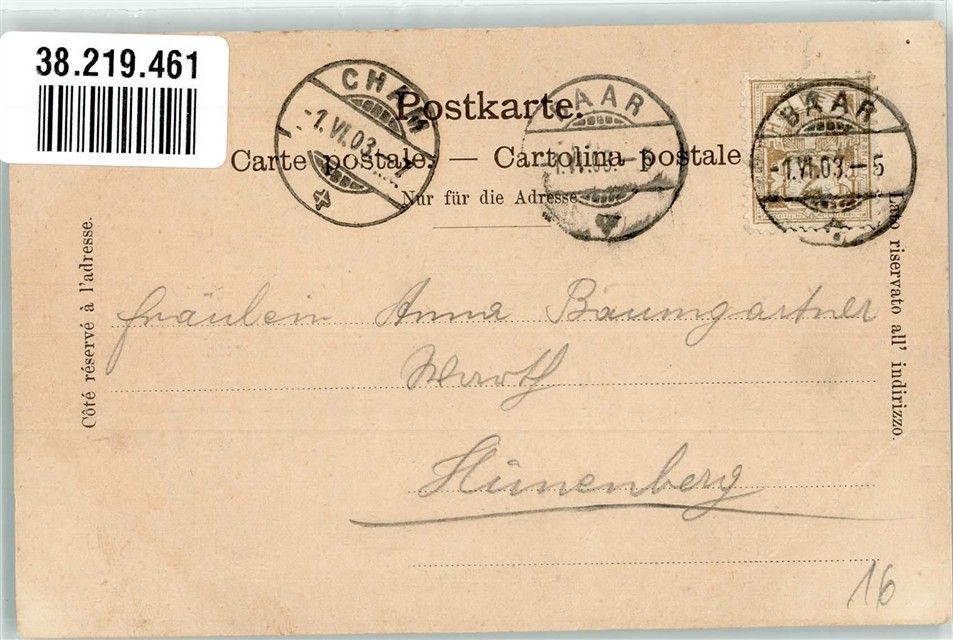 38.219.461
CHAM
-1.VI.03.-7
BAAR
-1.VI.03.-5
BAAR
-1.VI.03.-5
Postkarte.
Carte postale. — Cartolina postale
Nur für die Adresse
Côté réservé à l'adresse.
Lato riservato all' indirizzo.
Fräulein Anna Baumgartner
Warth
Hünenberg
16